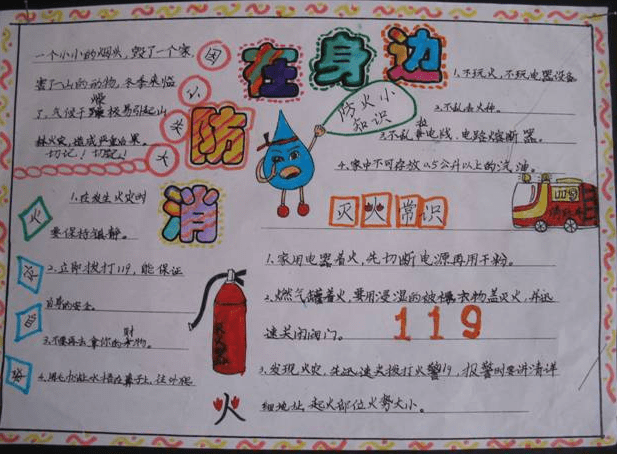 消防在身边
一个小小的烟头，毁了一个家，
害了一山的动物，冬季来临
燥
了，气候干极易引起山
林火灾，造成严重后果。
切记！切记！
防火小
知识
1.不玩火，不玩电器设备
2.不乱丢火种。
私
3.不乱电线、电路熔断器。
4.家中不可存放0.5公升以上的汽油。
火
1.在发生火灾时
要保持镇静。
2.立即拨打119，能保证
自身的安全。
财
3.不要再去拿你的物。
4.用水沾在鼻子上，往外爬
火
灭火常识
1.家用电器着火，先切断电源再用干粉。
2.燃气罐着火，要用浸湿的被褥衣物盖灭火，并迅
速关闭阀门。
119
3.发现火灾，先迅速拨打火警119，报警时要讲清详
细地址、起火部位火势大小。